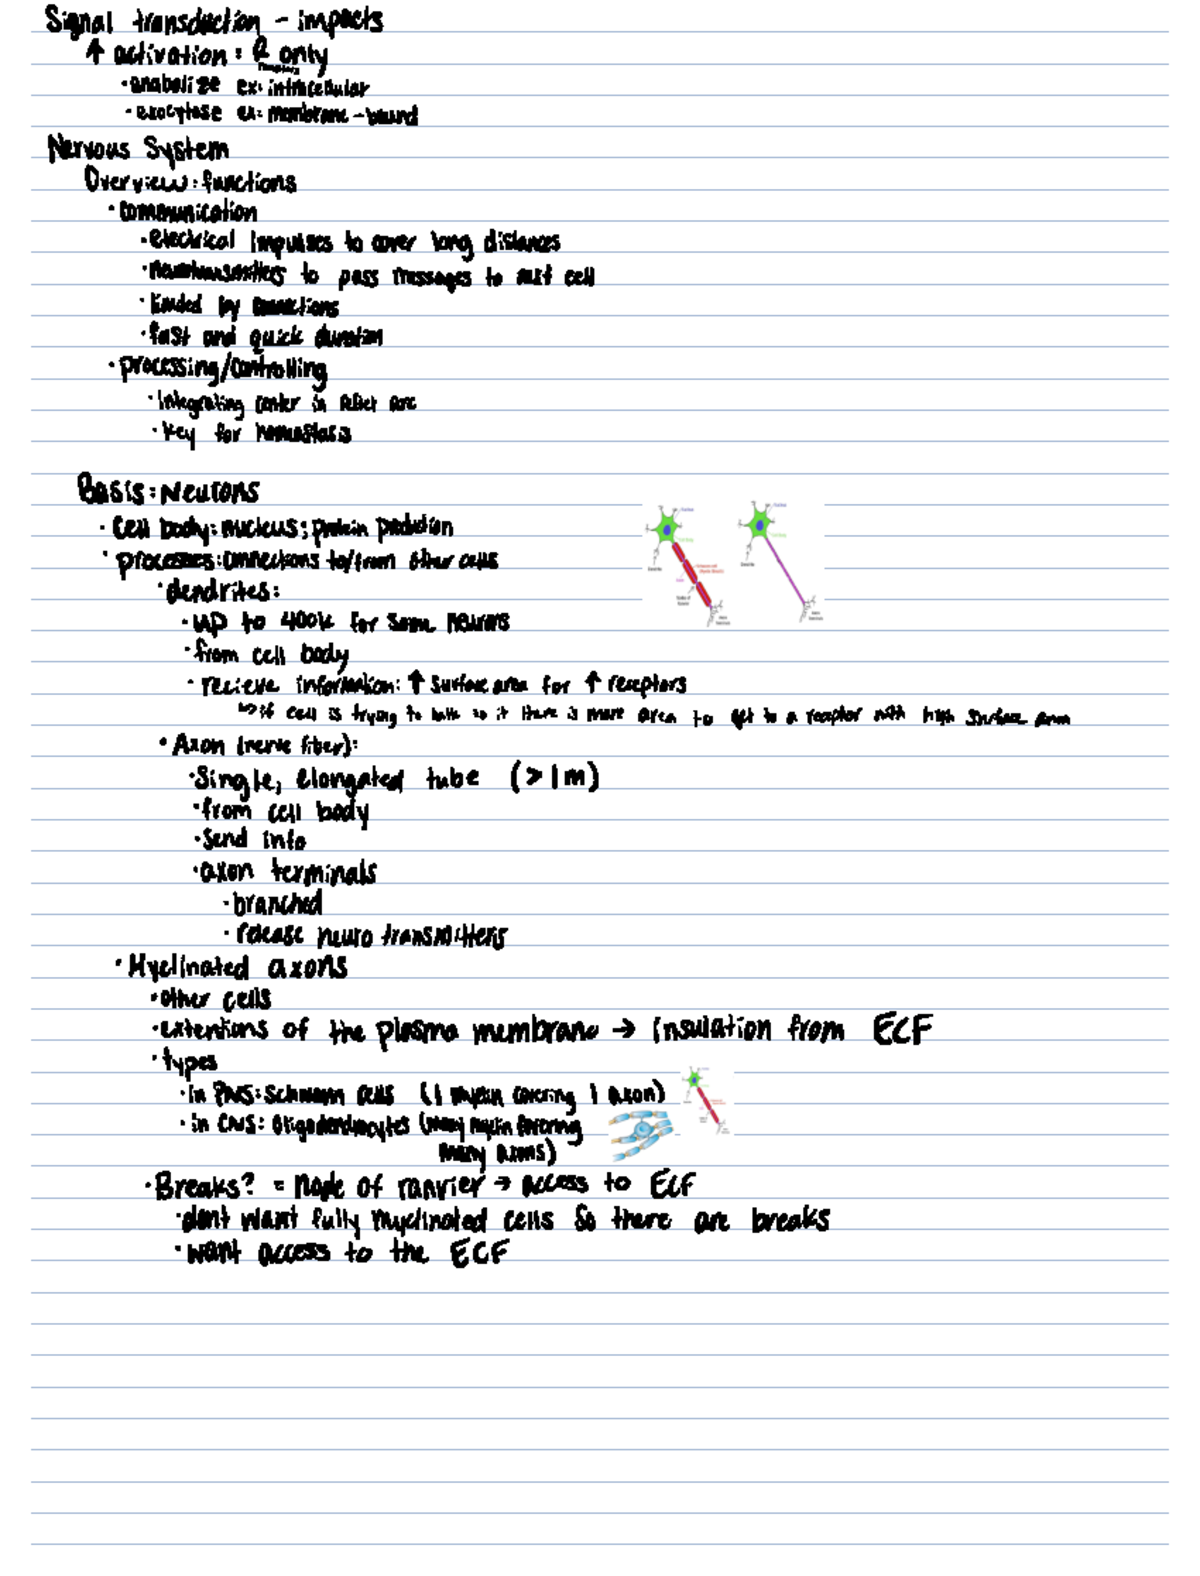 Signal transduction - impacts
↑ activation: R only
· anabolize ex: intracellular
· exocytose ex: membrane-bound
Nervous System
Overview: functions
· communication
· electrical impulses to cover long distances
· neurotransmitters to pass messages to next cell
· limited by connections
· fast and quick duration
· processing/controlling
· integrating center in reflex arc
· key for homeostasis
Basis: Neurons
· Cell body: nucleus; protein production
· processes: connections to/from other cells
· dendrites:
· up to 400k for some neurons
· from cell body
· recieve information: ↑ surface area for ↑ receptors
↳ if cell is trying to talk to it there is more area to get to a receptor with high surface area
· Axon (nerve fiber):
· Single, elongated tube (>1m)
· from cell body
· Send info
· axon terminals
· branched
· release neurotransmitters
· Myelinated axons
· other cells
· extentions of the plasma membrane → insulation from ECF
· types
· in PNS: Schwann cells (1 myelin covering 1 axon)
· in CNS: oligodendrocytes (many myelin covering
many axons)
· Breaks? = node of ranvier → access to ECF
· dont want fully myelinated cells so there are breaks
· want access to the ECF